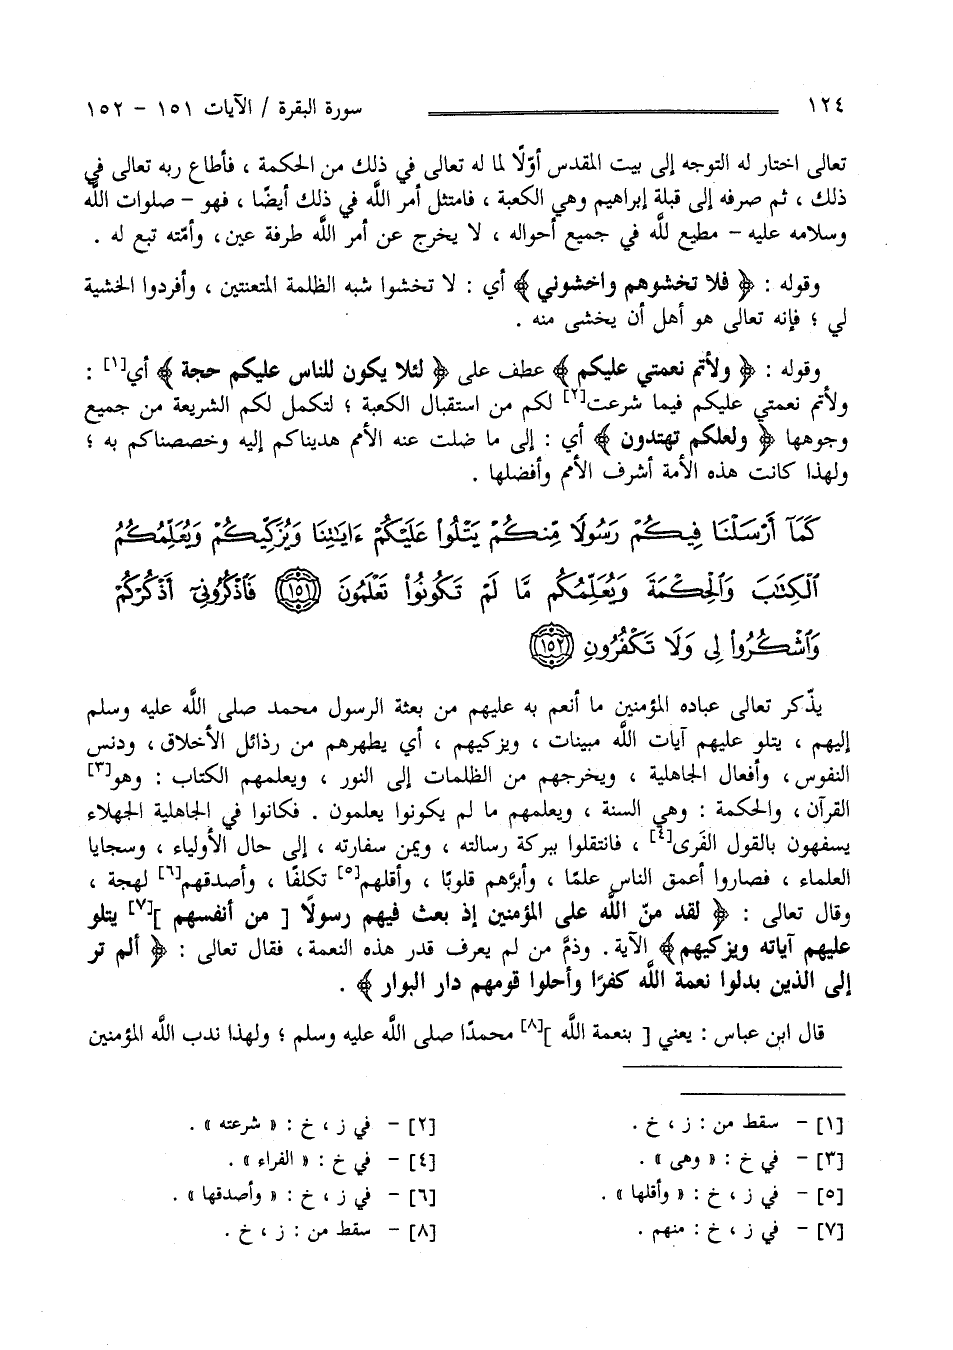 ١٢٤ سورة البقرة / الآيات ١٥١ - ١٥٢
تعالى اختار له التوجه إلى بيت المقدس أوّلًا لما له تعالى في ذلك من الحكمة ، فأطاع ربه تعالى في
ذلك ، ثم صرفه إلى قبلة إبراهيم وهي الكعبة ، فامتثل أمر اللَّه في ذلك أيضًا ، فهو - صلوات اللَّه
وسلامه عليه - مطيع للَّه في جميع أحواله ، لا يخرج عن أمر اللَّه طرفة عين، وأمّته تبع له .
وقوله : ﴿ فلا تخشوهم واخشوني ﴾ أي : لا تخشوا شبه الظلمة المتعنتين ، وأفردوا الخشية
لي ؛ فإنه تعالى هو أهل أن يخشى منه .
وقوله : ﴿ ولأتم نعمتي عليكم ﴾ عطف على ﴿ لئلا يكون للناس عليكم حجة ﴾ أي[١] :
ولأتم نعمتي عليكم فيما شرعت[٢] لكم من استقبال الكعبة ؛ لتكمل لكم الشريعة من جميع
وجوهها ﴿ ولعلكم تهتدون ﴾ أي : إلى ما ضلت عنه الأمم هديناكم إليه وخصصناكم به ؛
ولهذا كانت هذه الأمة أشرف الأمم وأفضلها .
كَمَآ أَرْسَلْنَا فِيكُمْ رَسُولًا مِّنكُمْ يَتْلُوا۟ عَلَيْكُمْ ءَايَٰتِنَا وَيُزَكِّيكُمْ وَيُعَلِّمُكُمُ
ٱلْكِتَٰبَ وَٱلْحِكْمَةَ وَيُعَلِّمُكُم مَّا لَمْ تَكُونُوا۟ تَعْلَمُونَ ﴿١٥١﴾ فَٱذْكُرُونِىٓ أَذْكُرْكُمْ
وَٱشْكُرُوا۟ لِى وَلَا تَكْفُرُونِ ﴿١٥٢﴾
يذّكر تعالى عباده المؤمنين ما أنعم به عليهم من بعثة الرسول محمد صلى اللَّه عليه وسلم
إليهم ، يتلو عليهم آيات اللَّه مبينات ، ويزكيهم ، أي يطهرهم من رذائل الأخلاق، ودنس
النفوس، وأفعال الجاهلية ، ويخرجهم من الظلمات إلى النور ، ويعلمهم الكتاب : وهو[٣]
القرآن، والحكمة : وهي السنة ، ويعلمهم ما لم يكونوا يعلمون . فكانوا في الجاهلية الجهلاء
يسفهون بالقول الفَرى[٤] ، فانتقلوا ببركة رسالته ، ويمن سفارته ، إلى حال الأولياء ، وسجايا
العلماء ، فصاروا أعمق الناس علمًا ، وأبرَّهم قلوبًا ، وأقلهم[٥] تكلفًا ، وأصدقهم[٦] لهجة ،
وقال تعالى : ﴿ لقد منّ اللَّه على المؤمنين إذ بعث فيهم رسولًا [ من أنفسهم ][٧] يتلو
عليهم آياته ويزكيهم﴾ الآية. وذمَّ من لم يعرف قدر هذه النعمة، فقال تعالى : ﴿ ألم تر
إلى الذين بدلوا نعمة اللَّه كفرًا وأحلوا قومهم دار البوار ﴾ .
قال ابن عباس : يعني [ بنعمة اللَّه ][٨] محمدًا صلى اللَّه عليه وسلم ؛ ولهذا ندب اللَّه المؤمنين
[١] - سقط من : ز ، خ . [٢] - في ز ، خ : « شرعته » .
[٣] - في خ : « وهى » . [٤] - في خ : « الفراء » .
[٥] - في ز ، خ : « وأقلها » . [٦] - في ز ، خ : « وأصدقها » .
[٧] - في ز ، خ : منهم . [٨] - سقط من : ز ، خ .